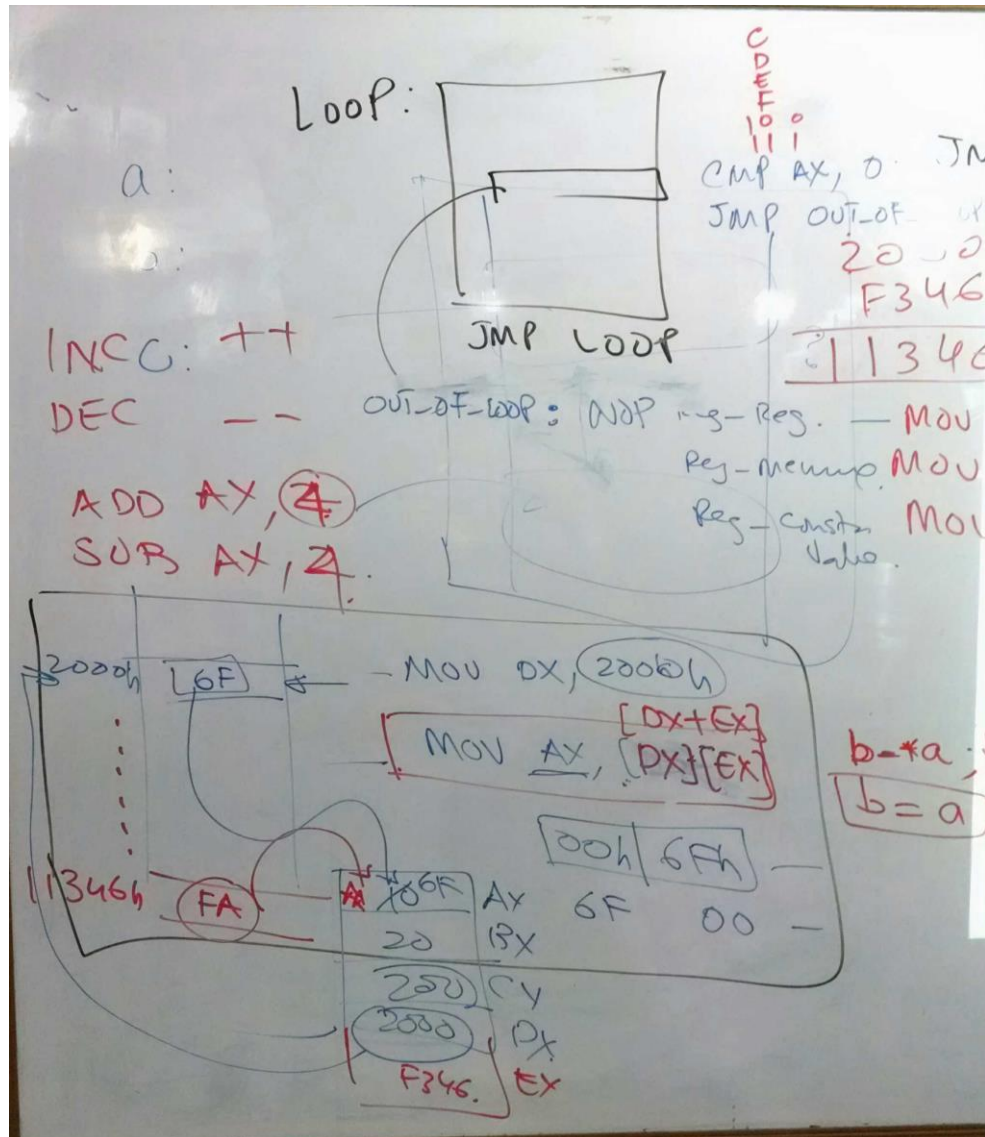 C
D
E
F
10 0
11 1
LOOP:
a:
CMP AX, 0 JM
JMP OUT_OF_
20 0
F346
11346
JMP LOOP
INCC: ++
DEC --
OUT_OF_LOOP: NOP
Reg. — MOV
Reg - MOV
Reg - MOV
ADD AX, 4
SUB AX, 4.
2000h 6F
- MOV DX, 2000h
[DX+EX]
MOV AX, [DX][EX]
b=*a ;
b=a
00h 6Fh —
6F 00 —
11346h FA
6F AX
20 BX
200 CX
2000 DX
F346. EX